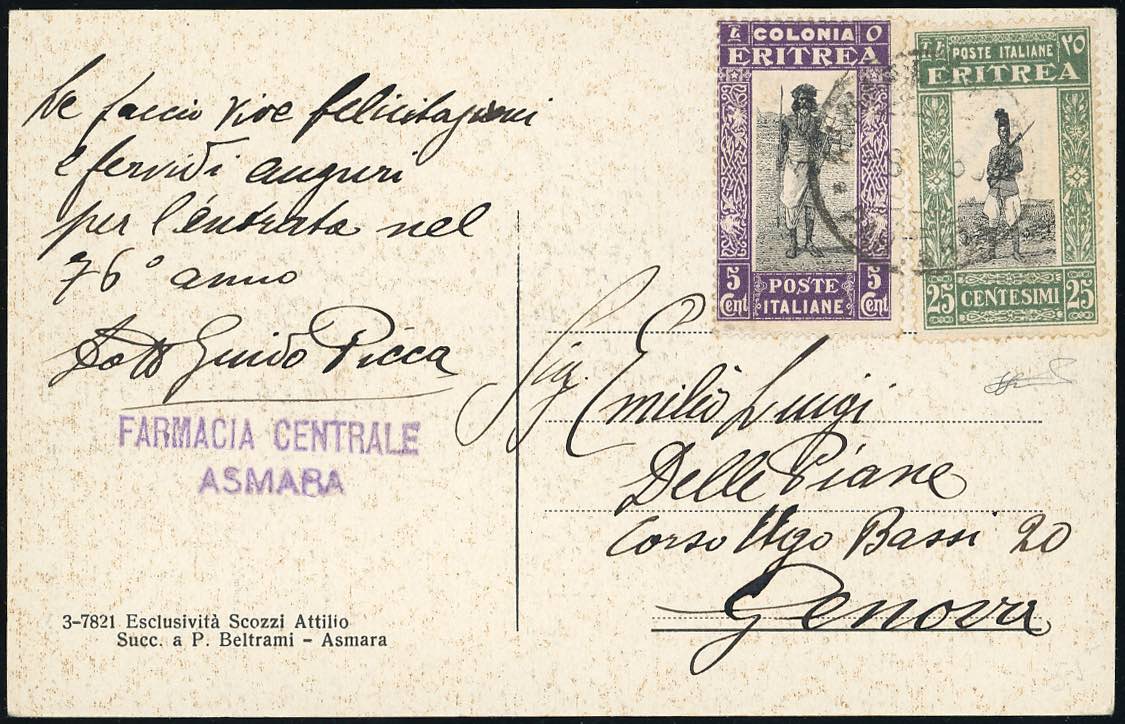 Le faccio vive felicitazioni
e fervidi auguri
per l'entrata nel
76° anno
Dott Guido Picca
FARMACIA CENTRALE
ASMARA
3-7821 Esclusività Scozzi Attilio
Succ. a P. Beltrami - Asmara
COLONIA
ERITREA
5 Cent
POSTE ITALIANE
5 Cent
٢٥
POSTE ITALIANE
ERITREA
25 CENTESIMI 25
Sig. Emilio Luigi
Delle Piane
Corso Ugo Bassi 20
Genova